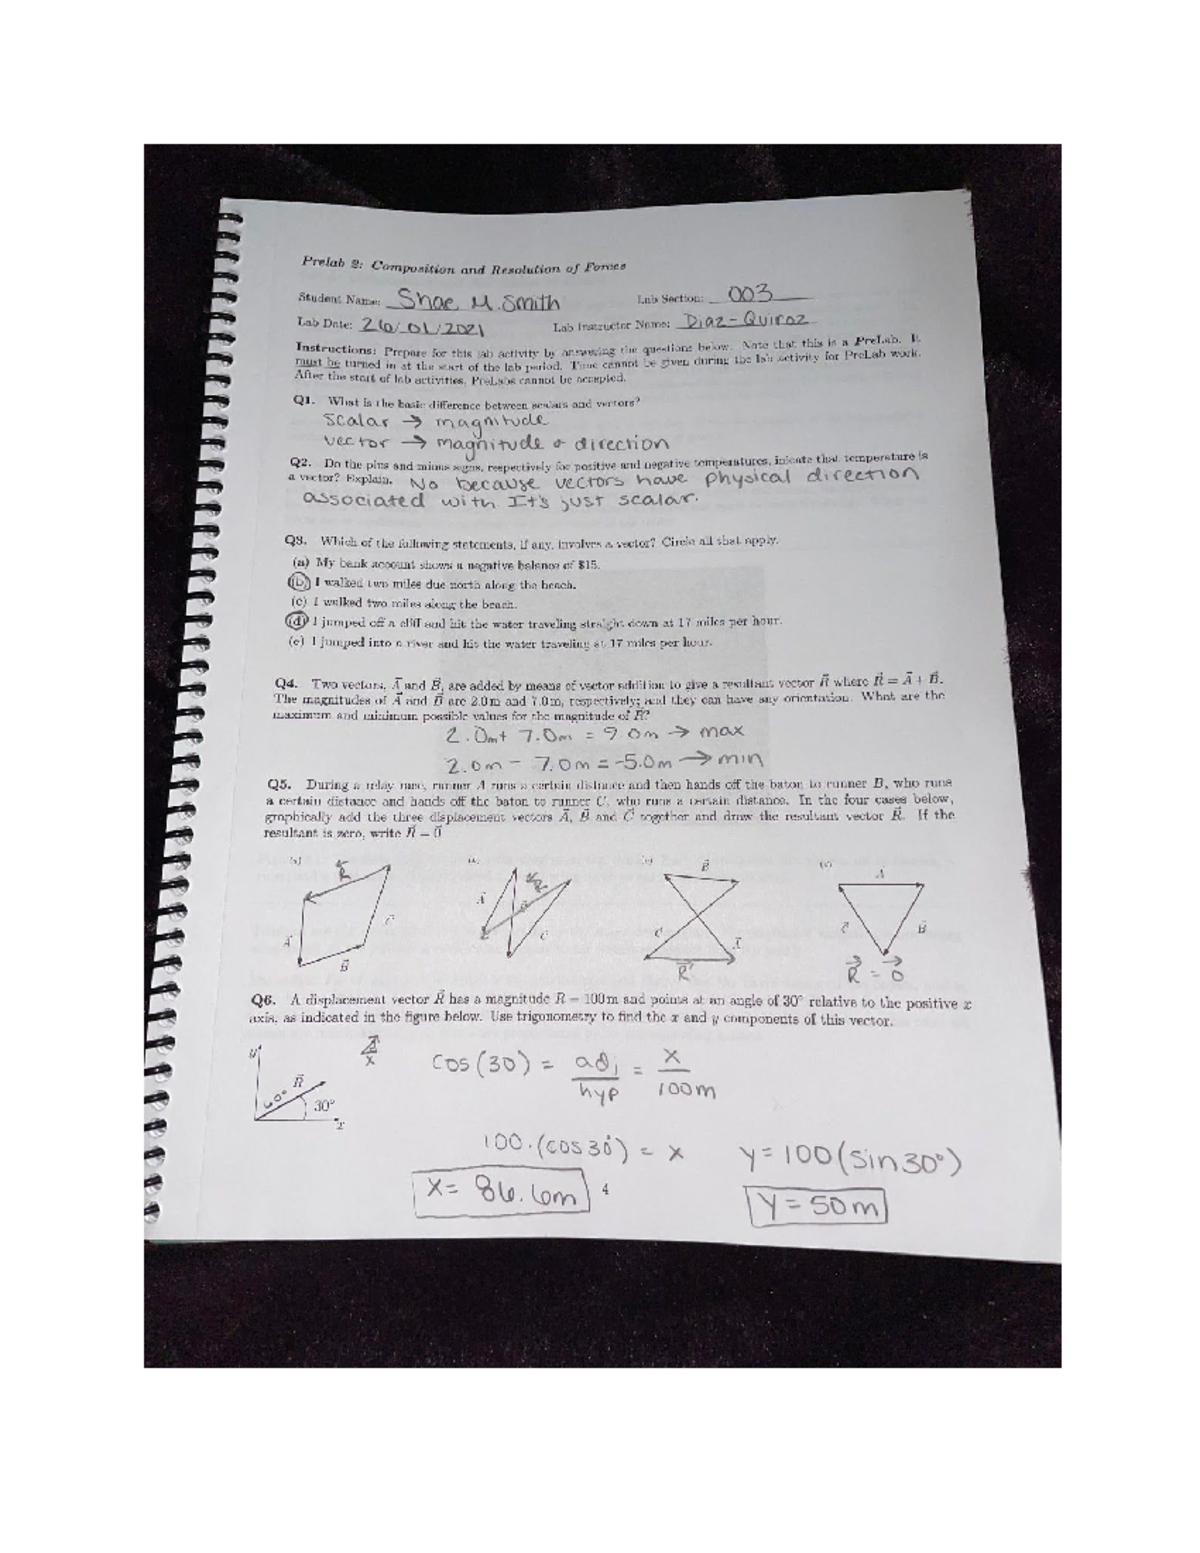 Prelab 2: Composition and Resolution of Forces
Student Name: Shae M. Smith Lab Section: 003
Lab Date: 26/01/2021 Lab Instructor Name: Diaz-Quiroz
Instructions: Prepare for this lab activity by answering the questions below. Note that this is a PreLab. It
must be turned in at the start of the lab period. Time cannot be given during the lab activity for PreLab work.
After the start of lab activities, PreLabs cannot be accepted.
Q1. What is the basic difference between scalars and vectors?
Scalar → magnitude
vector → magnitude & direction
Q2. Do the plus and minus signs, respectively for positive and negative temperatures, inicate that temperature is
a vector? Explain. No because vectors have physical direction
associated with It's just scalar.
Q3. Which of the following statements, if any, involves a vector? Circle all that apply.
(a) My bank account shows a negative balance of $15.
(b) I walked two miles due north along the beach.
(c) I walked two miles along the beach.
(d) I jumped off a cliff and hit the water traveling straight down at 17 miles per hour.
(e) I jumped into a river and hit the water traveling at 17 miles per hour.
Q4. Two vectors, A⃗ and B⃗, are added by means of vector addition to give a resultant vector R⃗ where R⃗ = A⃗ + B⃗.
The magnitudes of A⃗ and B⃗ are 2.0m and 7.0m, respectively; and they can have any orientation. What are the
maximum and minimum possible values for the magnitude of R⃗?
2.0m + 7.0m = 9.0m → max
2.0m - 7.0m = -5.0m → min
Q5. During a relay race, runner A runs a certain distance and then hands off the baton to runner B, who runs
a certain distance and hands off the baton to runner C, who runs a certain distance. In the four cases below,
graphically add the three displacement vectors A⃗, B⃗ and C⃗ together and draw the resultant vector R⃗. If the
resultant is zero, write R⃗ = 0⃗
R⃗ R⃗ B⃗ A⃗
A⃗ C⃗ A⃗ C⃗ C⃗ A⃗ C⃗ B⃗
B⃗ R⃗ R⃗ = 0⃗
Q6. A displacement vector R⃗ has a magnitude R = 100m and points at an angle of 30° relative to the positive x
axis, as indicated in the figure below. Use trigonometry to find the x and y components of this vector.
y
R⃗
60° 30°
x
cos(30) = adj/hyp = x/100m
100·(cos30°) = x y=100(sin30°)
x= 86.6m 4 y=50m